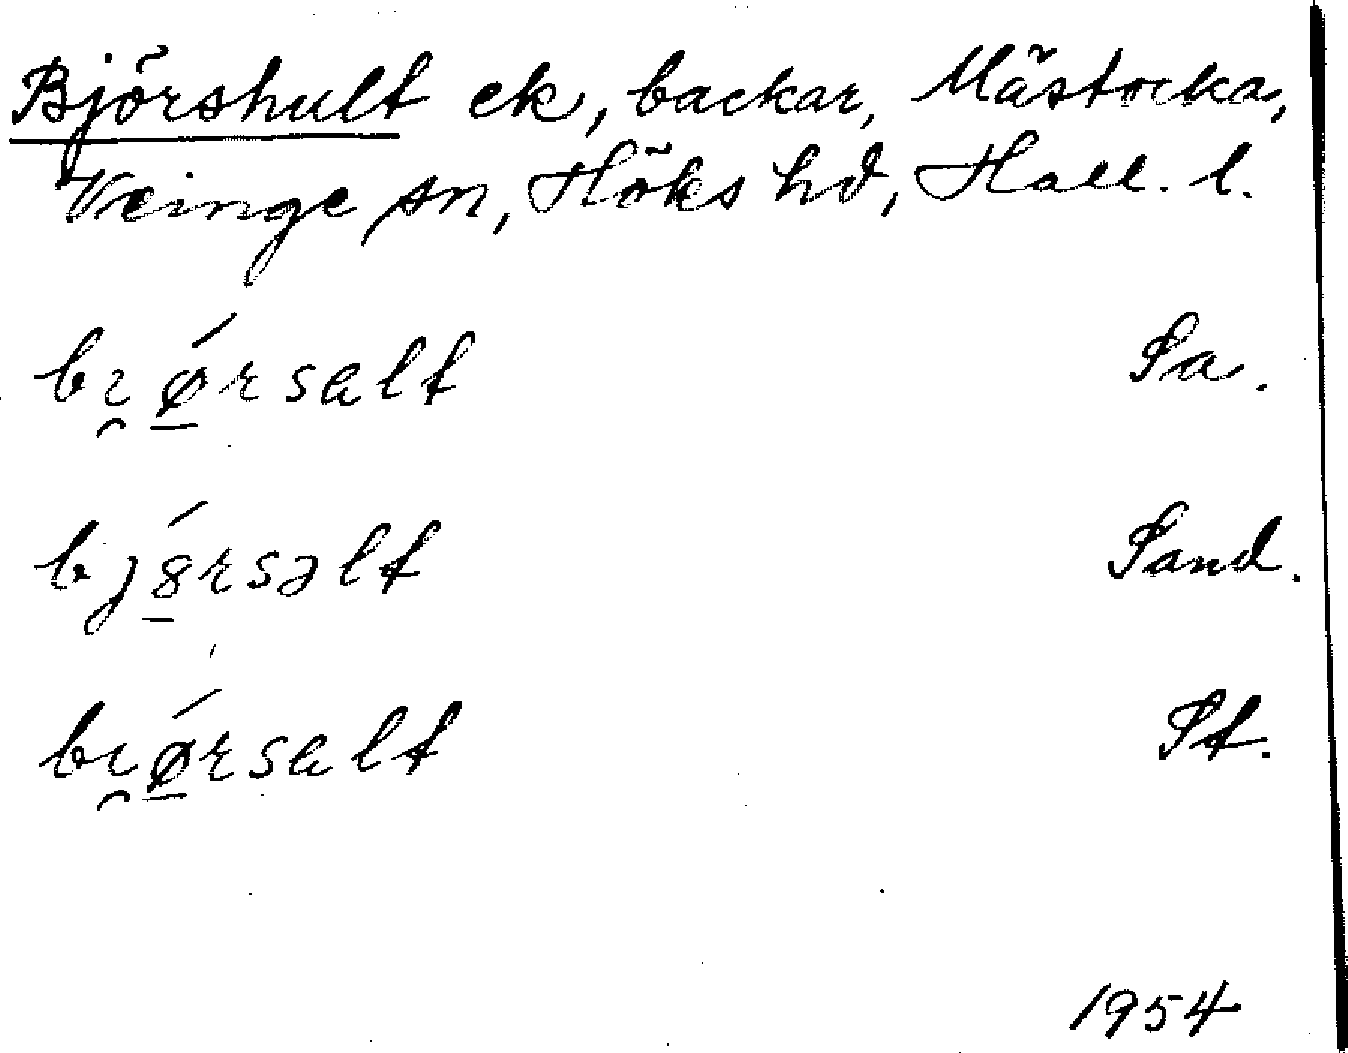 Björshult ek, backar, Mästocka,
Veinge sn, Höks hd, Hall. l.
bı̯ǿ̲rsalt Sa.
bjȣ̲́rsəlt Sand.
bı̯ǿ̲rsalt St.
1954